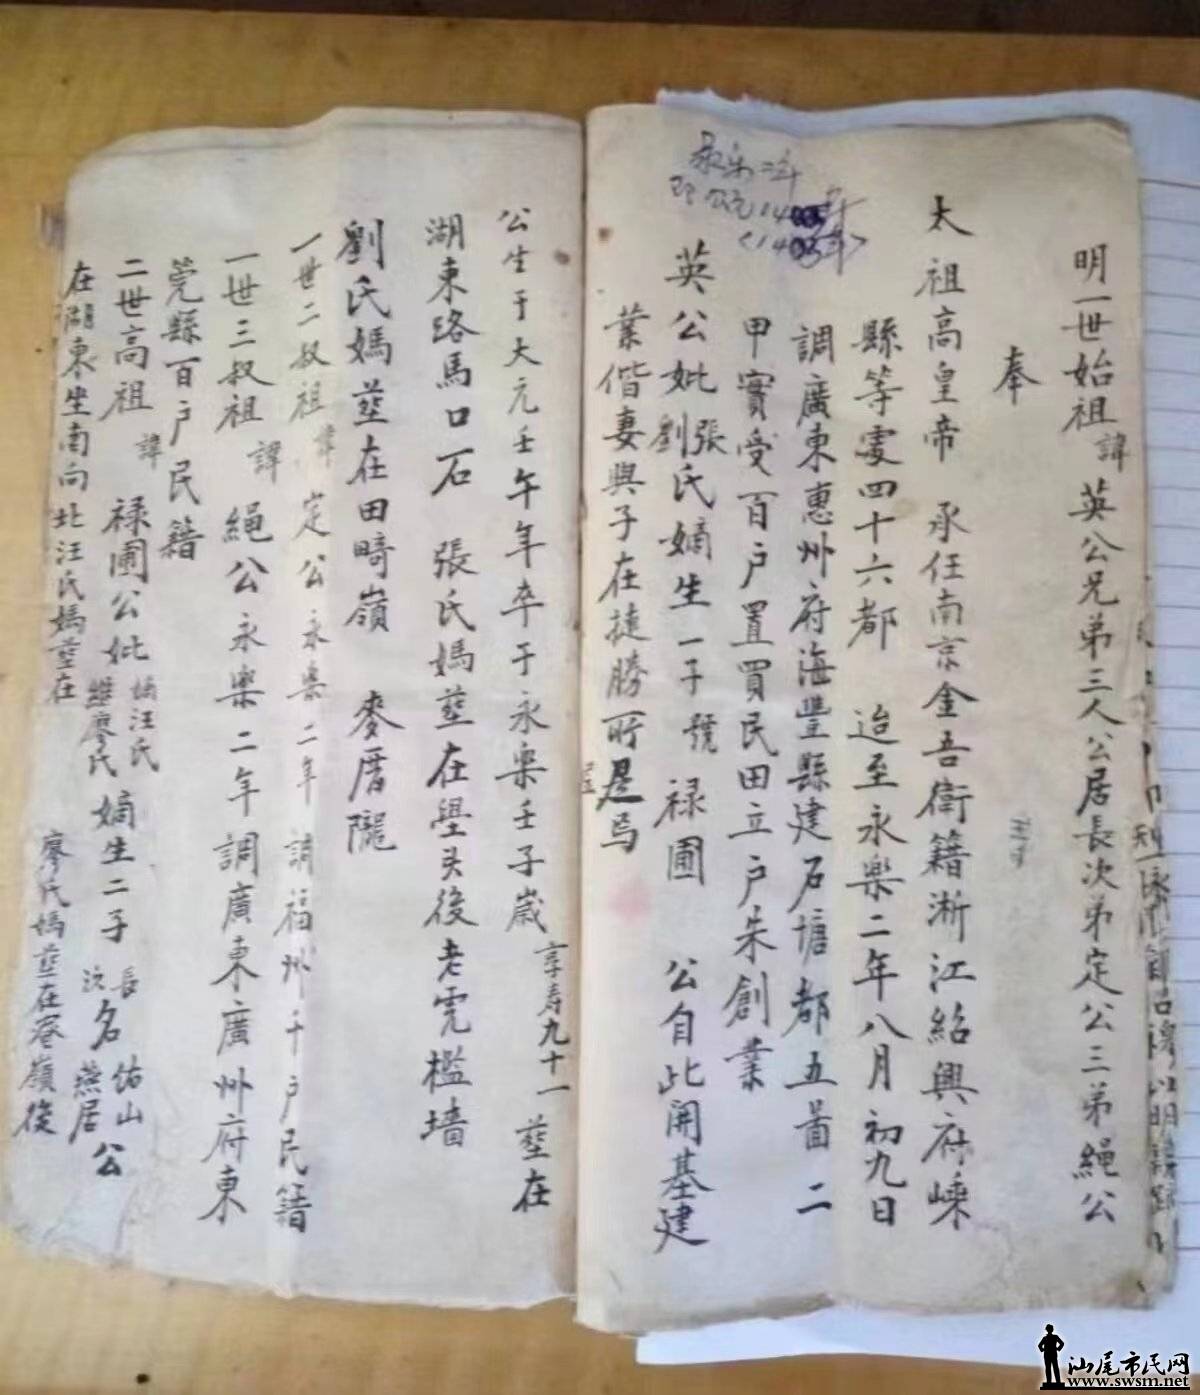 明一世始祖諱英公兄弟三人公居長次弟定公三弟繩公
奉
太祖高皇帝 承任南京金吾衛籍淅江紹興府嵊
縣等處四十六都 迨至永樂二年八月初九日
調廣東惠州府海豐縣建石塘都五啚二
甲實受百户置買民田立户朱創業
英公妣張劉氏嫡生一子號禄圃 公自此開基建
業偕妻與子在捷勝所是焉
永樂二年
公生于大元壬午年卒于永樂壬子歲享寿九十一 塟在
湖東路馬口石 張氏媽塟在壆头後老虎檻墙
劉氏媽塟在田畸嶺 麥厝隴
一世二叔祖諱定公永樂二年調福州千户民籍
一世三叔祖諱繩公永樂二年調廣東廣州府東
莞縣百户民籍
二世高祖諱禄圃公妣嫡汪氏継廖氏嫡生二子長次名佑山燕居公
在湖東坐南向北汪氏媽塟在 廖氏媽塟在奄嶺後
汕尾市民网
www.swsm.net